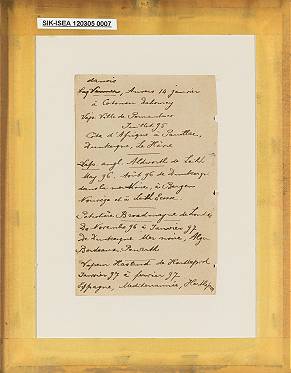 SIK-ISEA 120305 0007
danois
Anvers 14 janvier
à Cotonou Dahomey
Vap. Ville de Pernambuco
Juillet 95
Côte d'Afrique à Pauillac,
Dunkerque, Le Hâvre
Vap. angl. Aldworth de Leith
May 96. Août 96 de Dunkerque
dans la mer à Bergen
Norvège et à Leith Ecosse.
Broadmayne de Londres
de Novembre 96 à Janvier 97
de Dunkerque Mer noire, Alger
Bordeaux, Penarth
Vapeur de Hartlepool
Janvier 97 à février 97
Espagne, Méditerrannée, Hartlepool